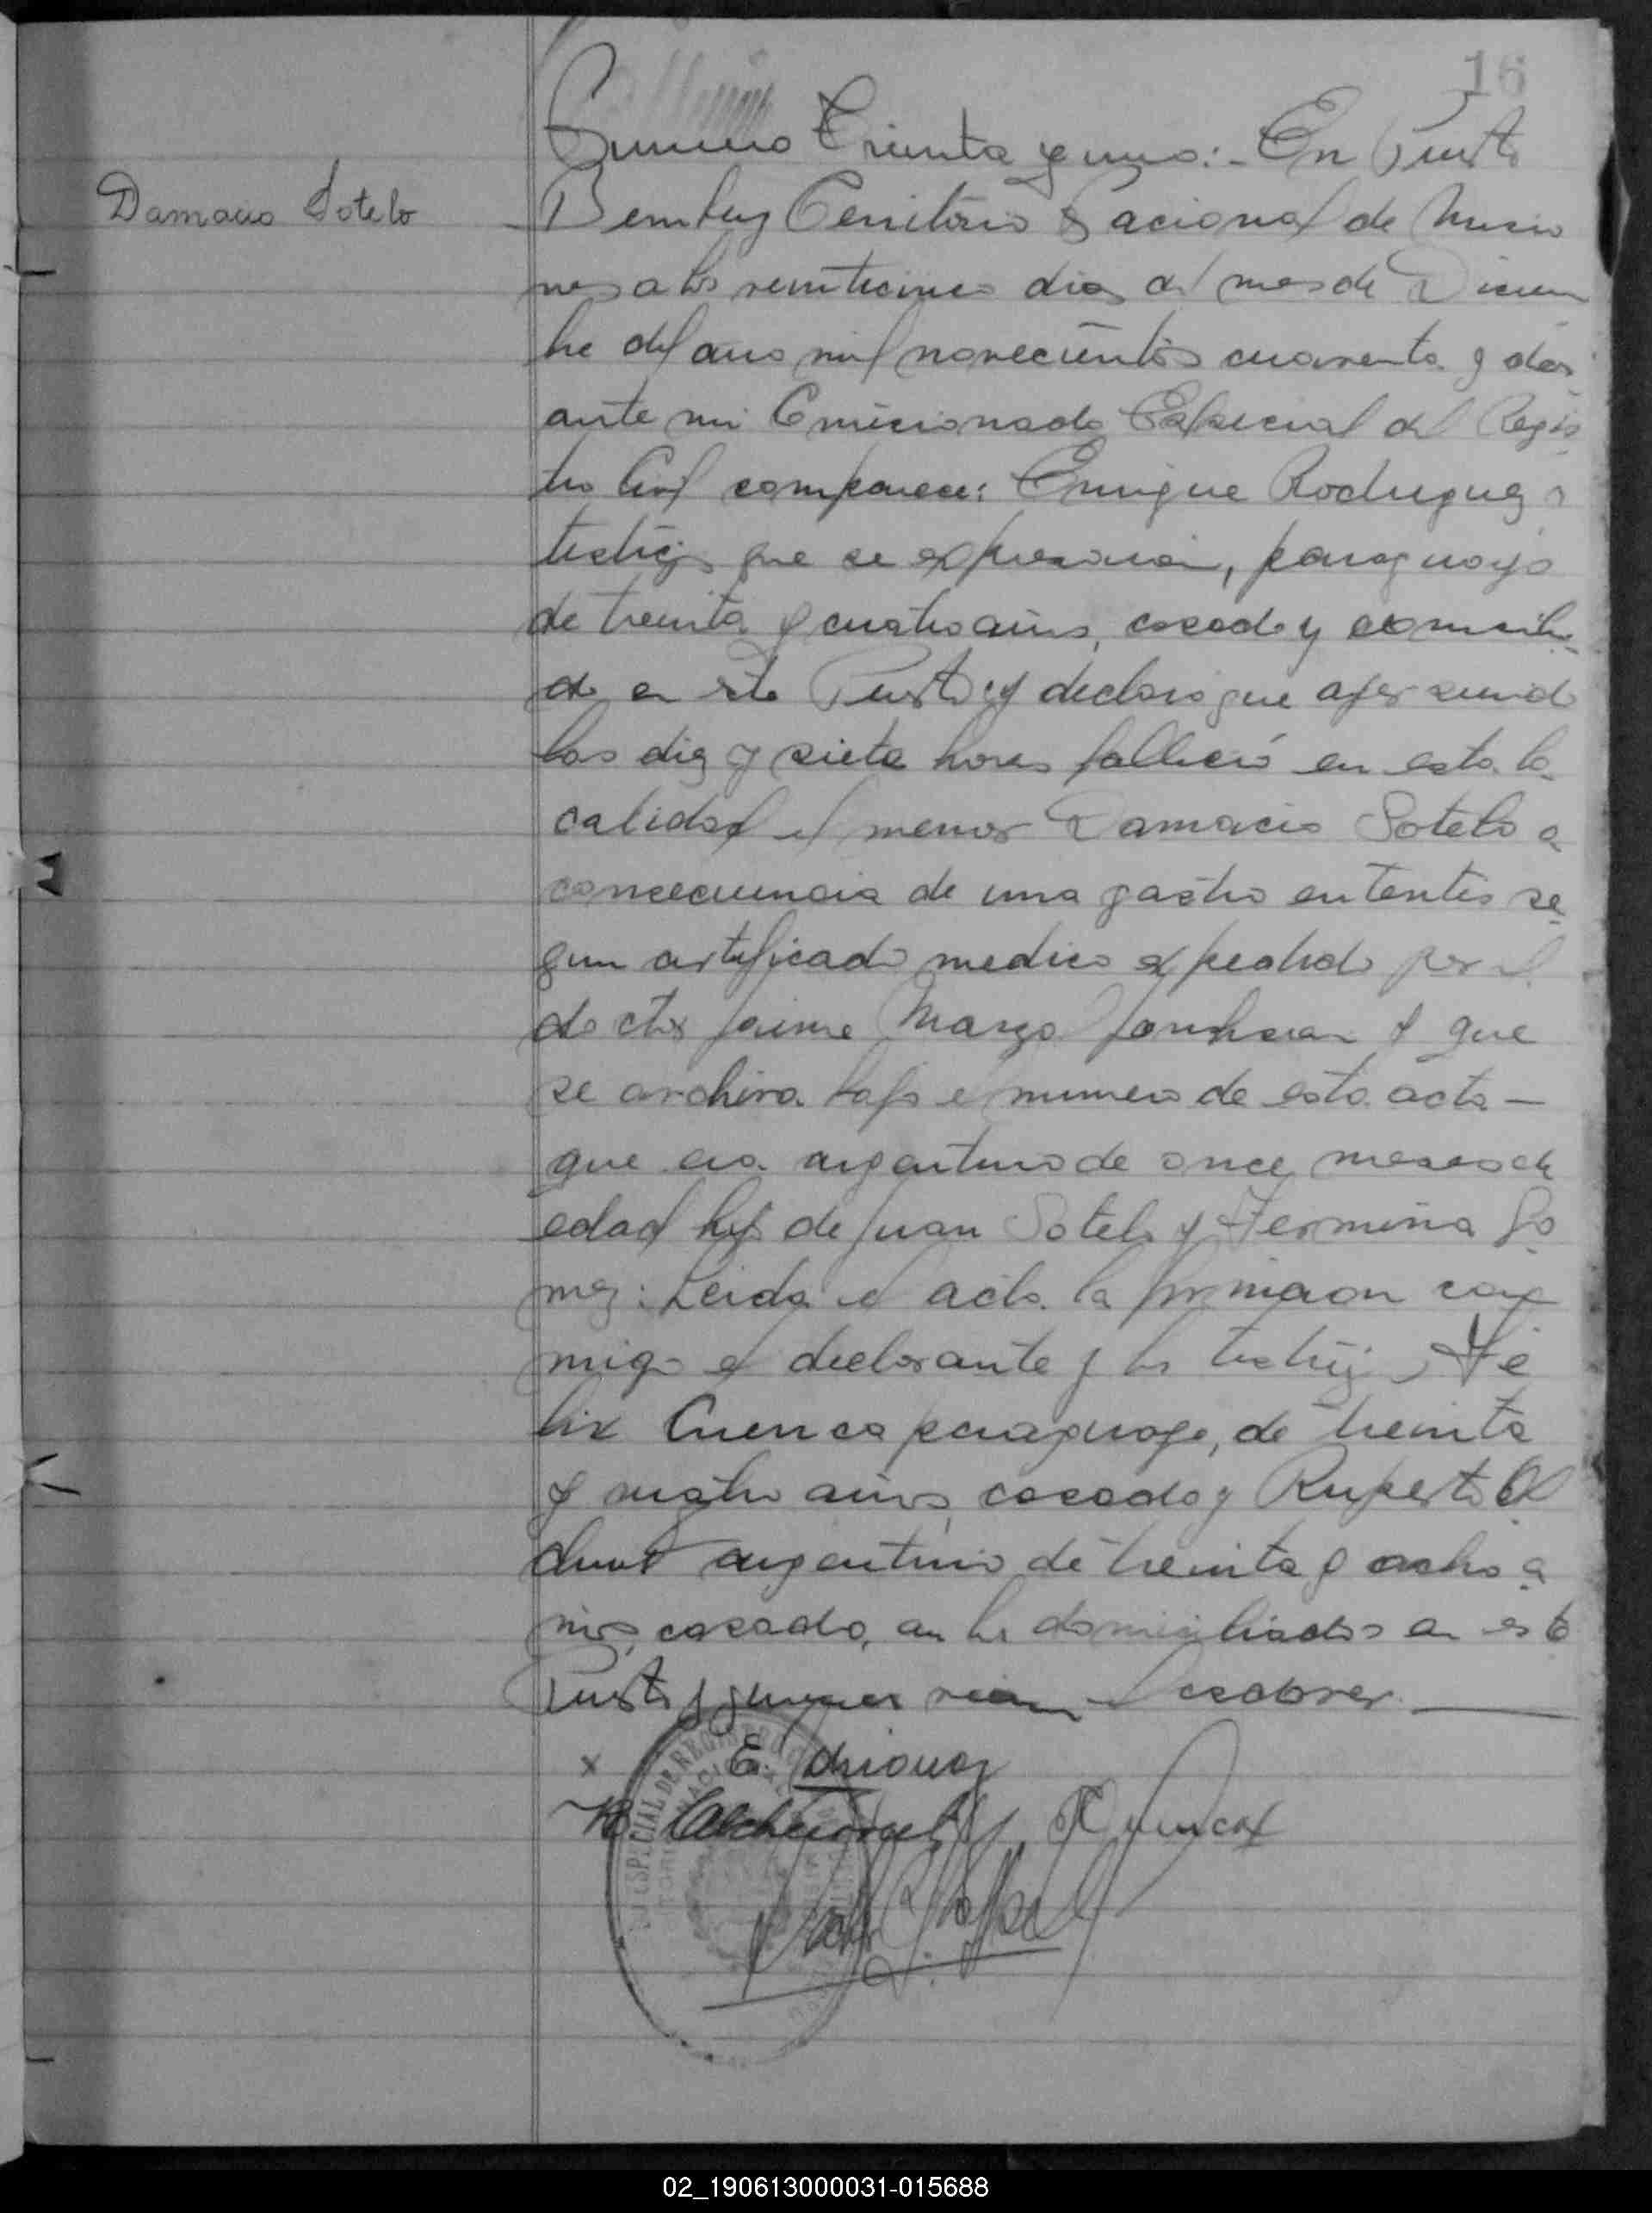 16
Damacio Sotelo
Numero Treinta y uno:- En Puerto
Bemberg Territorio Nacional de Misio
nes a los veinticinco dias del mes de Diciem
bre del año mil novecientos cuarenta y dos
ante mi Comicionado Especial del Regis
tro Civil comparece: Enrique Rodriguez
testigos que se expresaran, paraguayo
de treinta y cuatro años, casado y domicilia
do en este Puerto y declaro que ayer siendo
las diez y siete horas fallecio en esta lo
calidad el menor Damacio Sotelo a
consecuencia de una gastro enteritis se
gun certificado medico expedido por el
doctor Jaime Marzo y que
se archiva bajo el numero de esta acta —
que era argentino de once meses de
edad hijo de Juan Sotelo y Fermina Go
mez: Leida el acta la firmaron con
migo el declarante y los testigos Fe
lix Cuenca paraguayo, de treinta
y cuatro años, casado y Ruperto
argentino de treinta y ocho a
ños, casado, ambos domiciliados en este
Puerto y quienes vieron el cadaver.
x E.
02_190613000031-015688